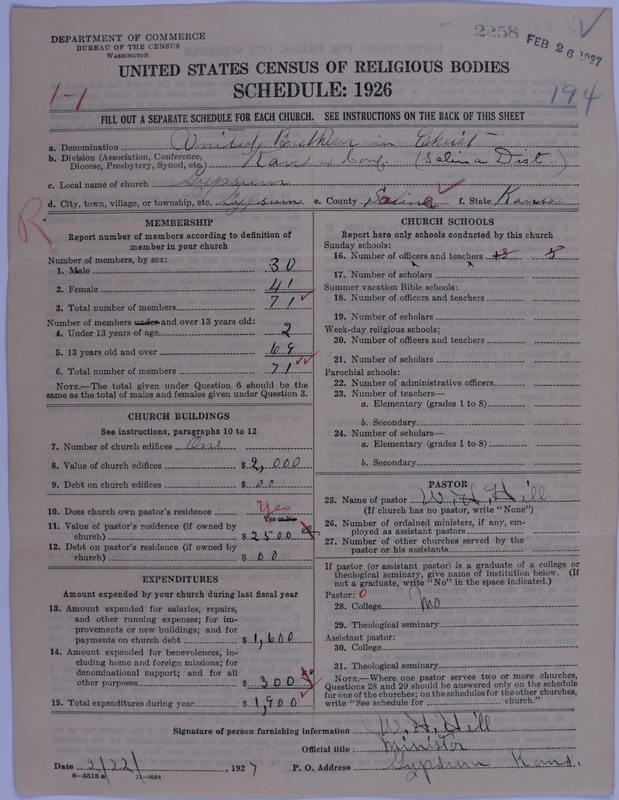 DEPARTMENT OF COMMERCE
BUREAU OF THE CENSUS
WASHINGTON
2258
FEB 26 1927
UNITED STATES CENSUS OF RELIGIOUS BODIES
1-1
SCHEDULE: 1926
194
FILL OUT A SEPARATE SCHEDULE FOR EACH CHURCH. SEE INSTRUCTIONS ON THE BACK OF THIS SHEET
a. Denomination United Brethren in Christ
b. Division (Association, Conference, Diocese, Presbytery, Synod, etc.) Kansas Conf (Salina Dist)
c. Local name of church Gypsum
d. City, town, village, or township, etc. Gypsum e. County Saline f. State Kansas
R
MEMBERSHIP
Report number of members according to definition of
member in your church
Number of members, by sex:
1. Male 30
2. Female 41
3. Total number of members 71
Number of members under and over 13 years old:
4. Under 13 years of age 2
5. 13 years old and over 69
6. Total number of members 71
NOTE.—The total given under Question 6 should be the
same as the total of males and females given under Question 3.
CHURCH BUILDINGS
See instructions, paragraphs 10 to 12
7. Number of church edifices One
8. Value of church edifices $2,000
9. Debt on church edifices $00
10. Does church own pastor's residence Yes
Yes or No
11. Value of pastor's residence (if owned by
church) $2500
12. Debt on pastor's residence (if owned by
church) $00
EXPENDITURES
Amount expended by your church during last fiscal year
13. Amount expended for salaries, repairs,
and other running expenses; for im-
provements or new buildings; and for
payments on church debt $1,600
14. Amount expended for benevolences, in-
cluding home and foreign missions; for
denominational support; and for all
other purposes $300
15. Total expenditures during year $1,900
CHURCH SCHOOLS
Report here only schools conducted by this church
Sunday schools:
16. Number of officers and teachers 13 8
17. Number of scholars
Summer vacation Bible schools:
18. Number of officers and teachers
19. Number of scholars
Week-day religious schools:
20. Number of officers and teachers
21. Number of scholars
Parochial schools:
22. Number of administrative officers
23. Number of teachers—
a. Elementary (grades 1 to 8)
b. Secondary
24. Number of scholars—
a. Elementary (grades 1 to 8)
b. Secondary
PASTOR
25. Name of pastor W. H. Hill
(If church has no pastor, write "None")
26. Number of ordained ministers, if any, em-
ployed as assistant pastors
27. Number of other churches served by the
pastor or his assistants
If pastor (or assistant pastor) is a graduate of a college or
theological seminary, give name of institution below. (If
not a graduate, write "No" in the space indicated.)
Pastor: 0
28. College No
29. Theological seminary
Assistant pastor:
30. College
31. Theological seminary
NOTE.—Where one pastor serves two or more churches,
Questions 28 and 29 should be answered only on the schedule
for one of the churches; on the schedules for the other churches,
write "See schedule for church."
Signature of person furnishing information W. H. Hill
Official title: Minister
Date 2/22/, 1927 P. O. Address Gypsum Kans.
8—5518 a 11—9054